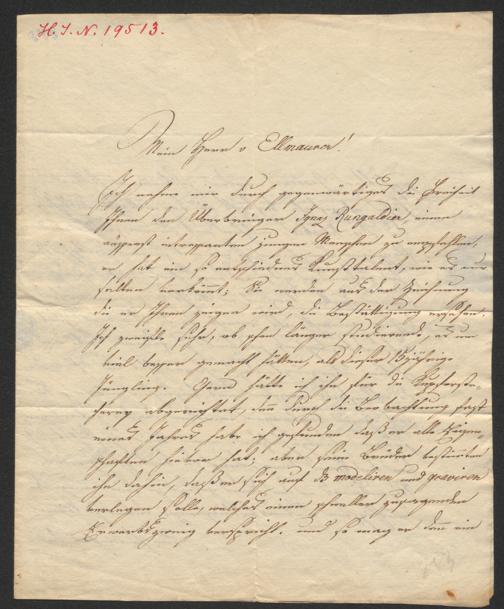 H. I. N. 19513.
Mein Herr v Ellmaurer!
Ich nehme mir durch gegenwärtiges die Freiheit
Ihnen den Überbringer Ignaz Rungaldier, einen
äusserst intressanten jungen Menschen zu empfehlen,
er hat ein so entschiedenes Kunsttalent, wie es nur
selten vorkömmt; Sie werden aus der Zeichnung
die er Ihnen zeigen wird, die Bestättigung ersehen.
Ich zweifle sehr, ob schon länger studierende, es um
viel besser gemacht hätten, als dieser 15 jährige
Jüngling. Gern hätte ich ihn für die Kupferste-
cherey abgerichtet, denn durch die Beobachtung fast
eines Jahres habe ich gefunden daß er alle Eigen-
schaften hiezu hat; aber seine Brüder bestimmten
ihn dahin, daß er sich auf das modeliren und graviren
verlegen solle, welches einen schnellen zusagenden
Erwerbszweig verspricht. und so mag er denn ein